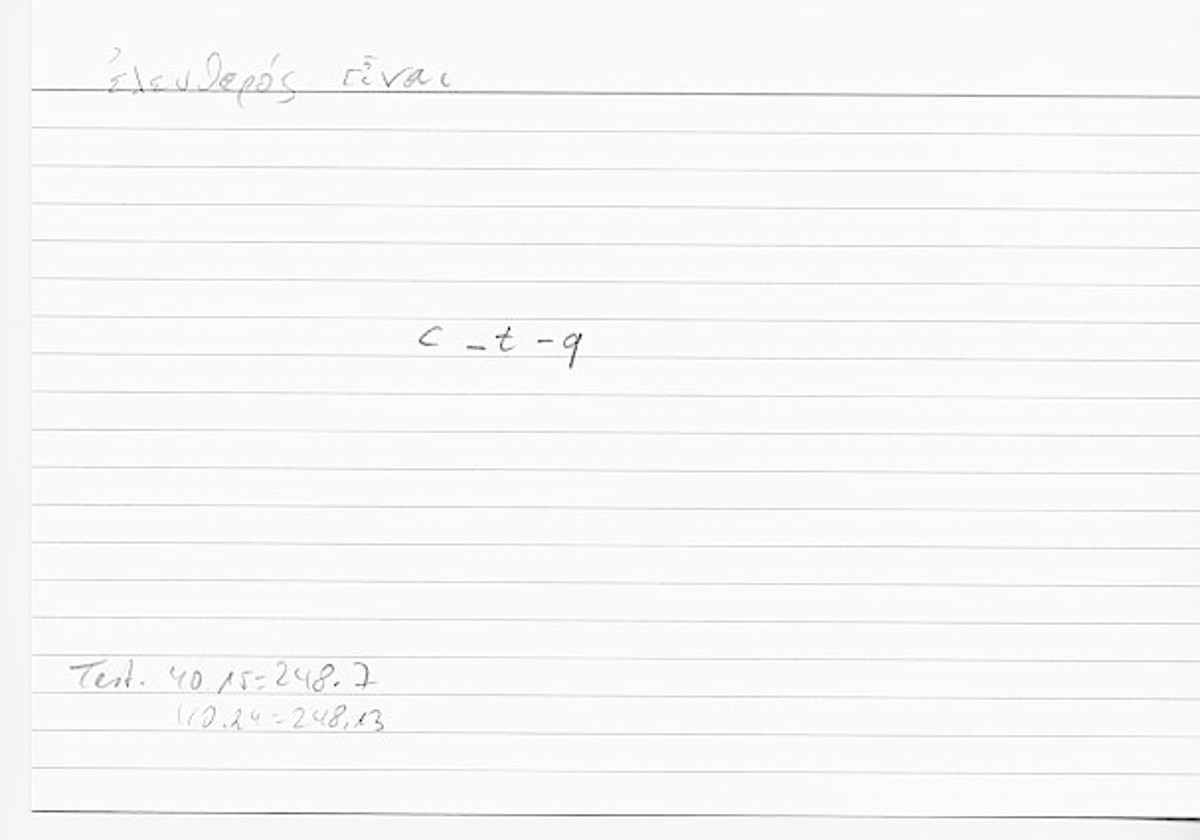 ἐλευθερός εἶναι
c - t - q
Test. 40.15=248.7
40.24=248.13